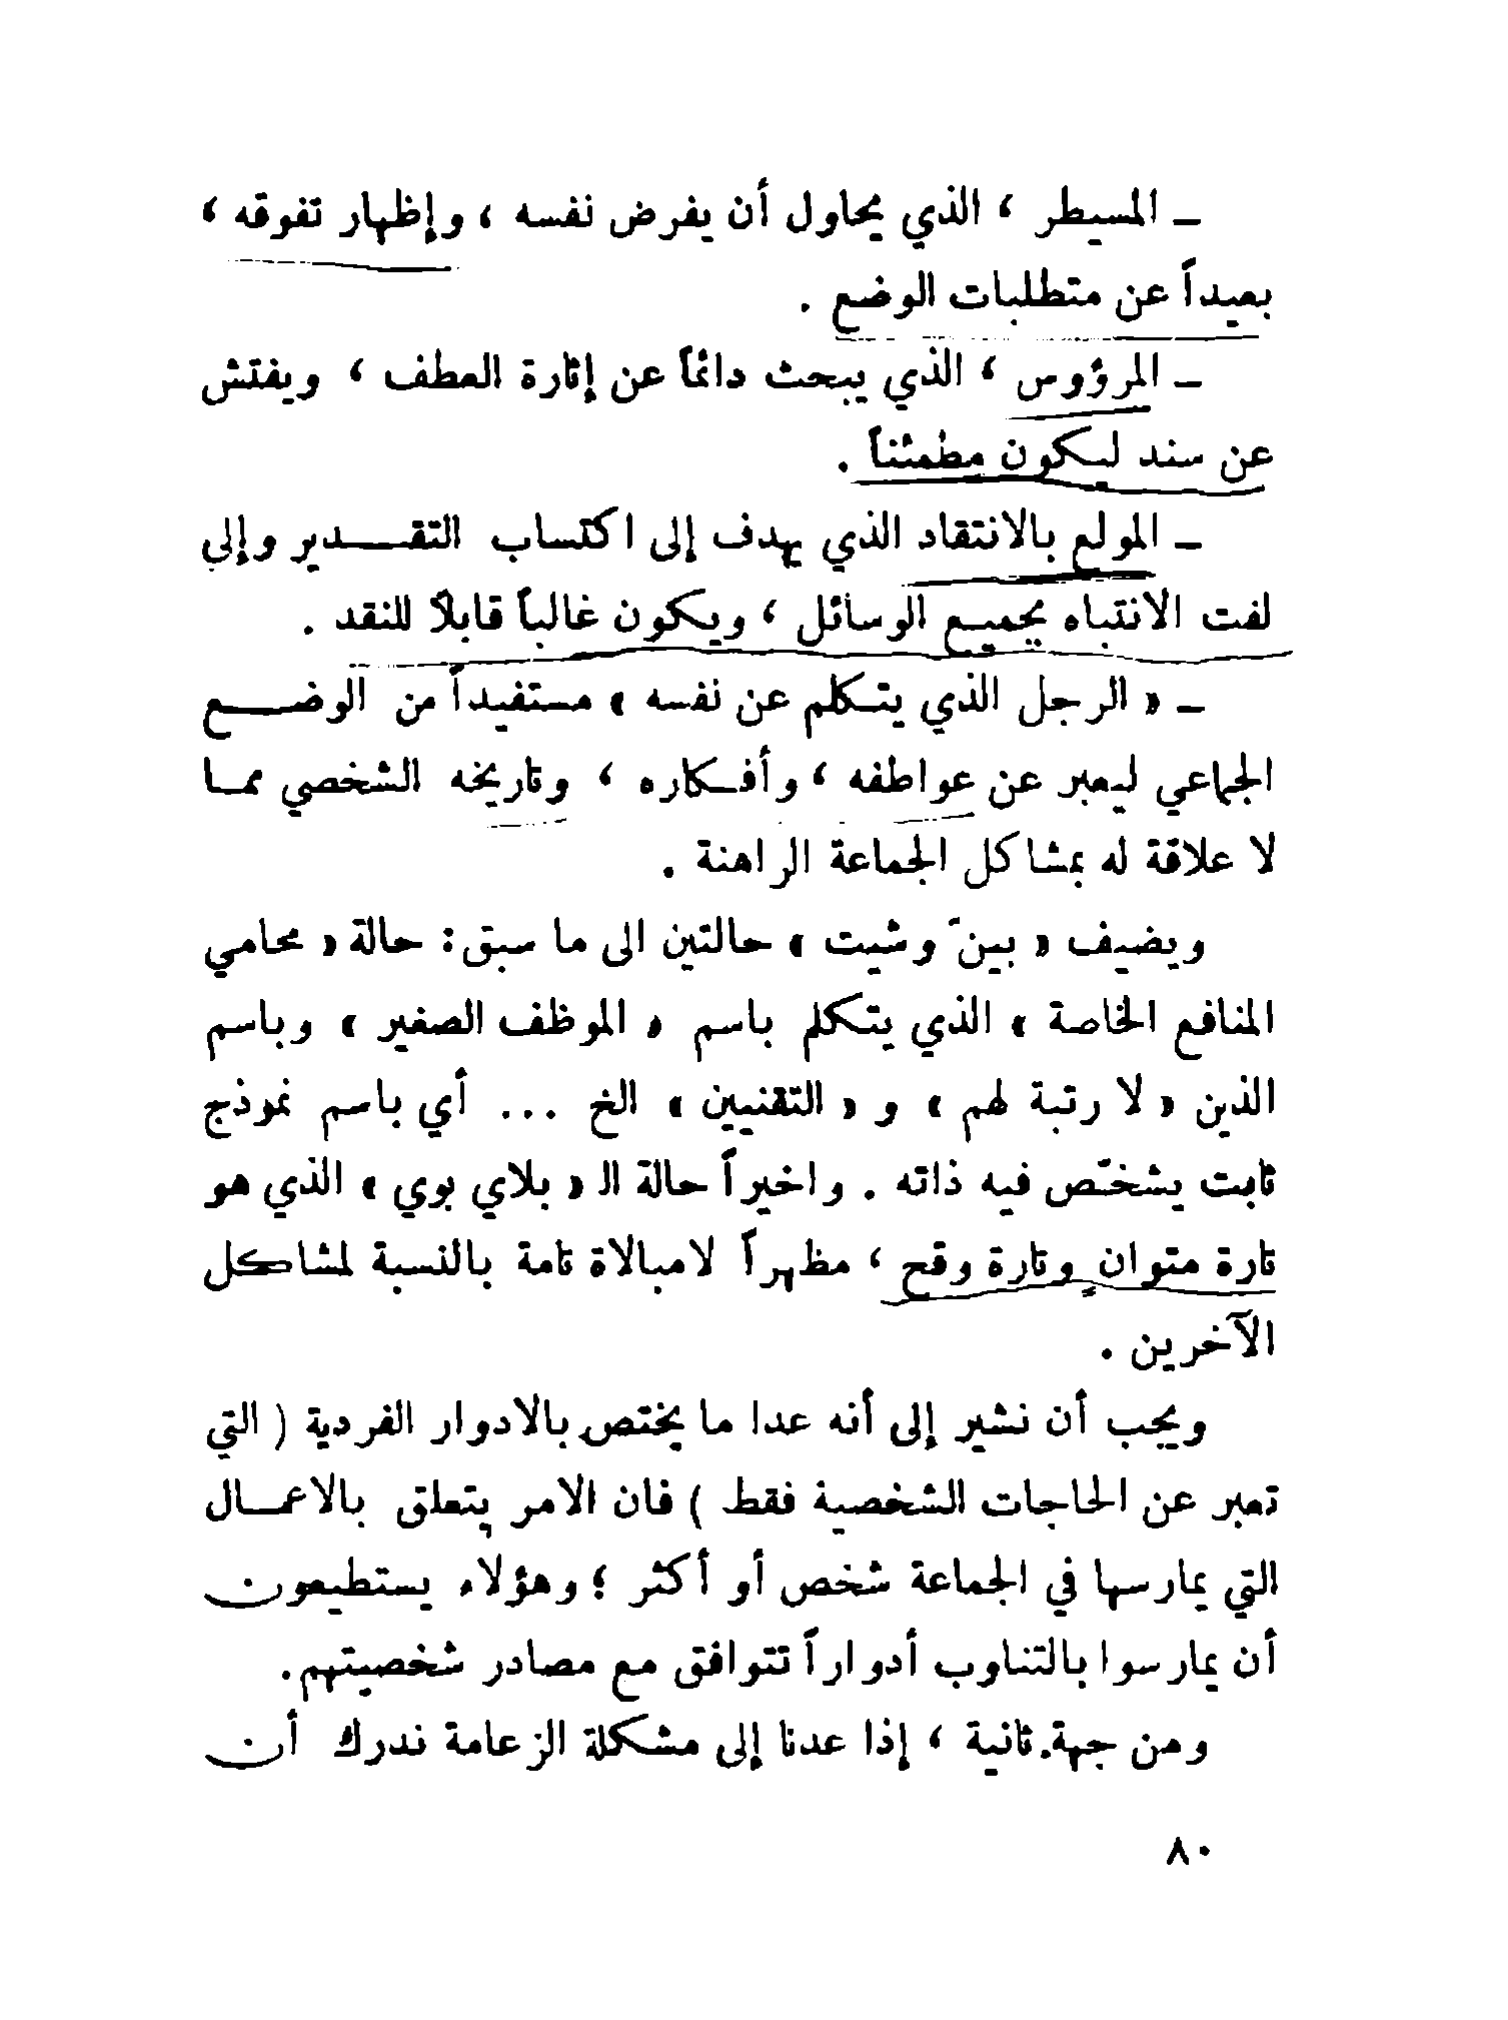 ـ المسيطر ، الذي يحاول أن يفرض نفسه ، وإظهار تفوقه ،
بعيداً عن متطلبات الوضع .
ـ المرؤوس ، الذي يبحث دائماً عن إثارة العطف ، ويفتش
عن سند ليكون مطمئناً .
ـ المولع بالانتقاد الذي يهدف إلى اكتساب التقـــدير وإلى
لفت الانتباه بجميع الوسائل ، ويكون غالباً قابلاً للنقد .
ـ « الرجل الذي يتكلم عن نفسه » مستفيداً من الوضــع
الجماعي ليعبر عن عواطفه ، وأفـكاره ، وتاريخه الشخصي ممـا
لا علاقة له بمشاكل الجماعة الراهنة .
ويضيف « بينّ وشيت » حالتين الى ما سبق : حالة « محامي
المنافع الخاصة » الذي يتكلم باسم « الموظف الصغير » وباسم
الذين « لا رتبة لهم » و « التقنيين » الخ ... أي باسم نموذج
ثابت يشخّص فيه ذاته . واخيراً حالة الـ « بلاي بوي » الذي هو
تارة متوانٍ وتارة وقح ، مظهراً لامبالاة تامة بالنسبة لمشاكل
الآخرين .
ويجب أن نشير إلى أنه عدا ما يختص بالادوار الفردية ( التي
تعبر عن الحاجات الشخصية فقط ) فان الامر يتعلق بالاعمـال
التي يمارسها في الجماعة شخص أو أكثر ؛ وهؤلاء يستطيعون
أن يمارسوا بالتناوب أدواراً تتوافق مع مصادر شخصيتهم .
ومن جهة ثانية ، إذا عدنا إلى مشكلة الزعامة ندرك أن
٨٠